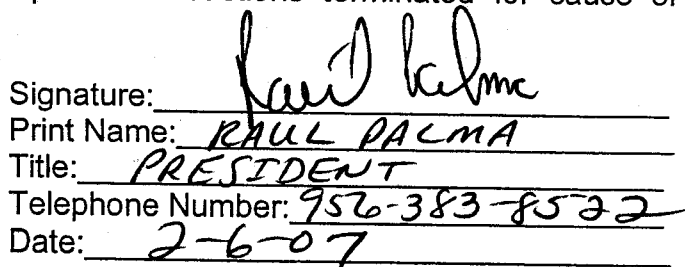 terminated for cause or
Signature: Raul Palma
Print Name: RAUL PALMA
Title: PRESIDENT
Telephone Number: 956-383-8522
Date: 2-6-07